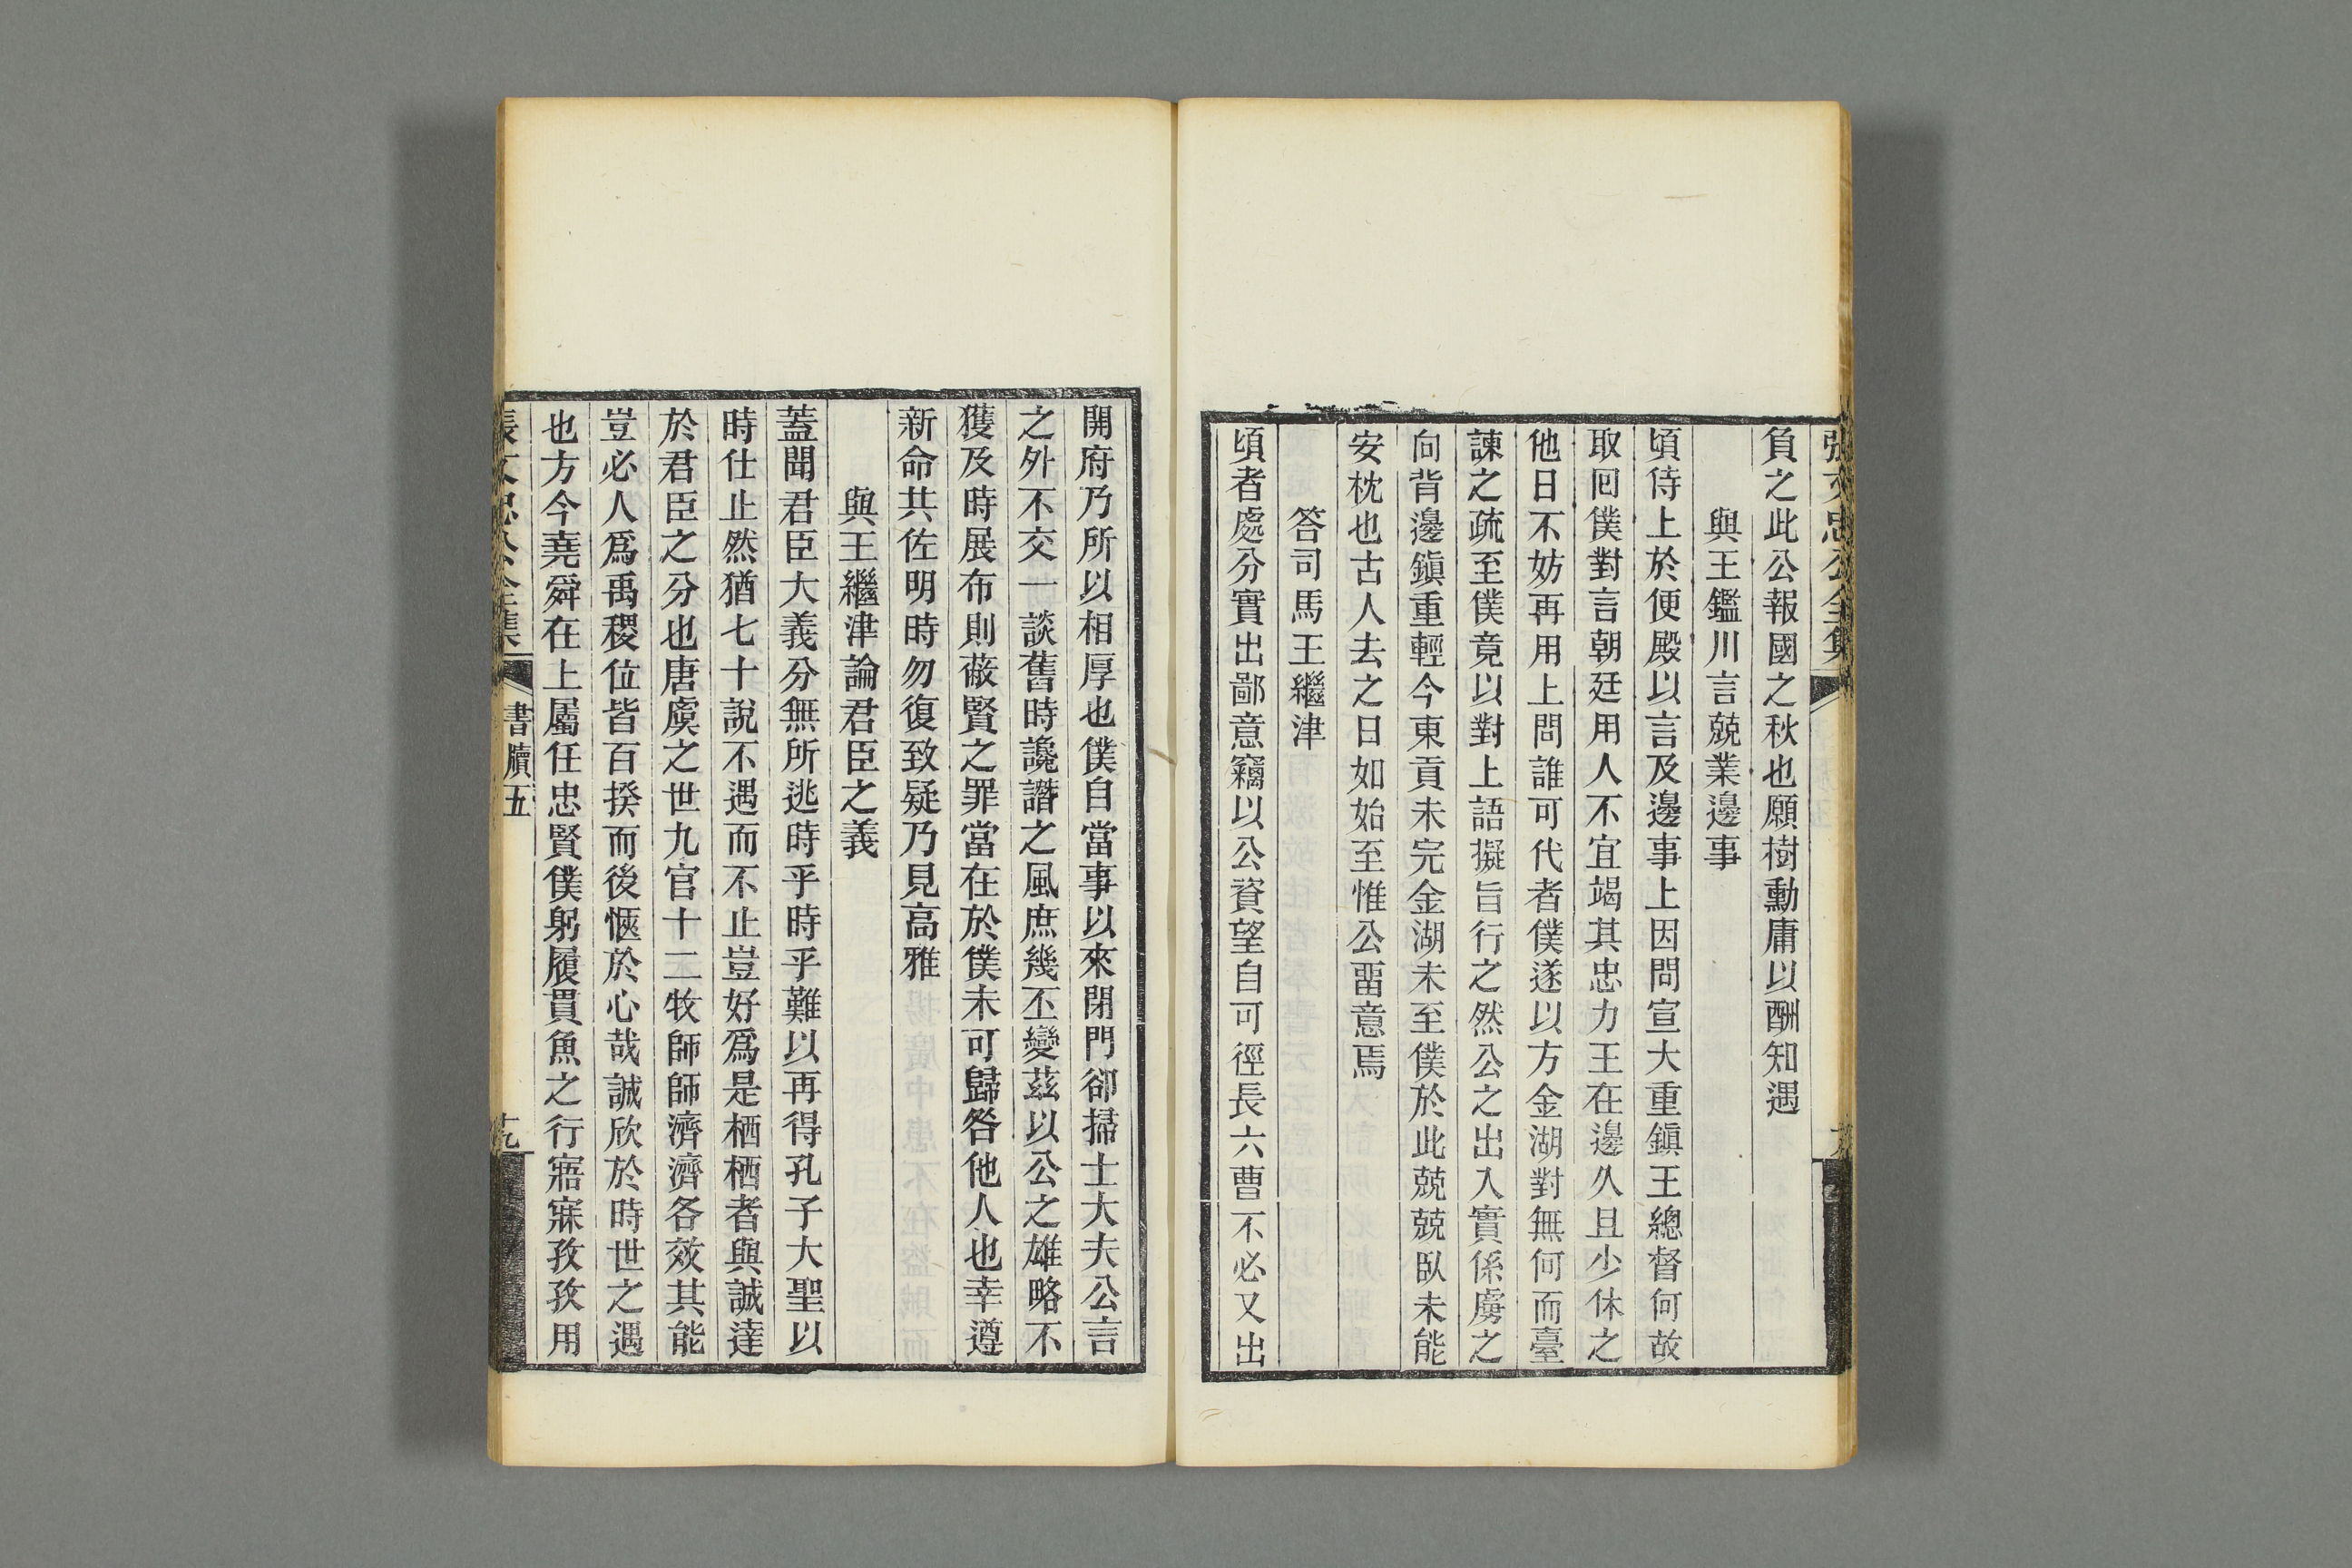 張文忠公全集
負之此公報國之秋也願樹勳庸以酬知遇
與王鑑川言兢業邊事
頃侍上於便殿以言及邊事上因問宣大重鎭王總督何故
取囘僕對言朝廷用人不宜竭其忠力王在邊久且少休之
他日不妨再用上問誰可代者僕遂以方金湖對無何而臺
諫之疏至僕竟以對上語擬旨行之然公之出入實係虜之
向背邊鎭重輕今東貢未完金湖未至僕於此兢兢臥未能
安枕也古人去之日如始至惟公畱意焉
答司馬王繼津
頃者處分實出鄙意竊以公資望自可徑長六曹不必又出
開府乃所以相厚也僕自當事以來閉門卻掃士大夫公言
之外不交一談舊時讒譖之風庶幾丕變茲以公之雄略不
獲及時展布則蔽賢之罪當在於僕未可歸咎他人也幸遵
新命共佐明時勿復致疑乃見高雅
與王繼津論君臣之義
蓋聞君臣大義分無所逃時乎時乎難以再得孔子大聖以
時仕止然猶七十說不遇而不止豈好爲是栖栖者與誠達
於君臣之分也唐虞之世九官十二牧師師濟濟各效其能
豈必人爲禹稷位皆百揆而後愜於心哉誠欣於時世之遇
也方今堯舜在上屬任忠賢僕躬履貫魚之行寤寐孜孜用
張文忠公全集
書牘五
十九